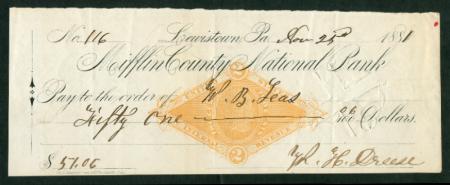 No. 116 Lewistown, Pa. Nov 25th 1881
Mifflin County National Bank
Pay to the order of W. B. Leas
Fifty One 06/100 Dollars.
2
2
$51.06 W. H. Dreese